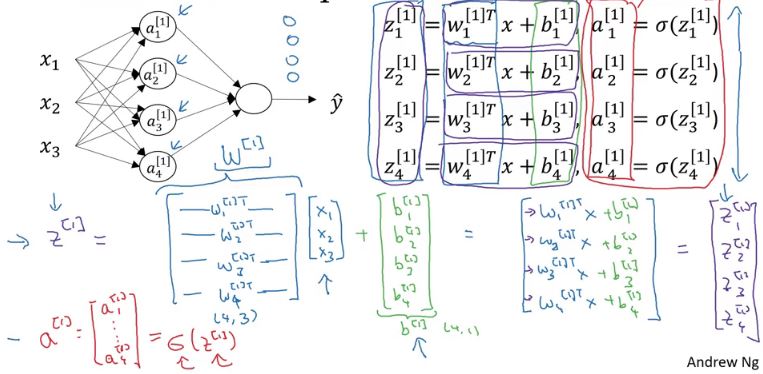 x₁
x₂
x₃
a₁^[1]
a₂^[1]
a₃^[1]
a₄^[1]
ŷ
z₁^[1] = w₁^[1]T x + b₁^[1], a₁^[1] = σ(z₁^[1])
z₂^[1] = w₂^[1]T x + b₂^[1], a₂^[1] = σ(z₂^[1])
z₃^[1] = w₃^[1]T x + b₃^[1], a₃^[1] = σ(z₃^[1])
z₄^[1] = w₄^[1]T x + b₄^[1], a₄^[1] = σ(z₄^[1])
W^[1]
→ z^[1] =
w₁^[1]T
w₂^[1]T
w₃^[1]T
w₄^[1]T
(4,3)
x₁
x₂
x₃
+
b₁^[1]
b₂^[1]
b₃^[1]
b₄^[1]
b^[1] (4,1)
=
→ w₁^[1]T x + b₁^[1]
→ w₂^[1]T x + b₂^[1]
→ w₃^[1]T x + b₃^[1]
→ w₄^[1]T x + b₄^[1]
=
z₁^[1]
z₂^[1]
z₃^[1]
z₄^[1]
a^[1] = [a₁^[1] ⋮ a₄^[1]] = σ(z^[1])
Andrew Ng